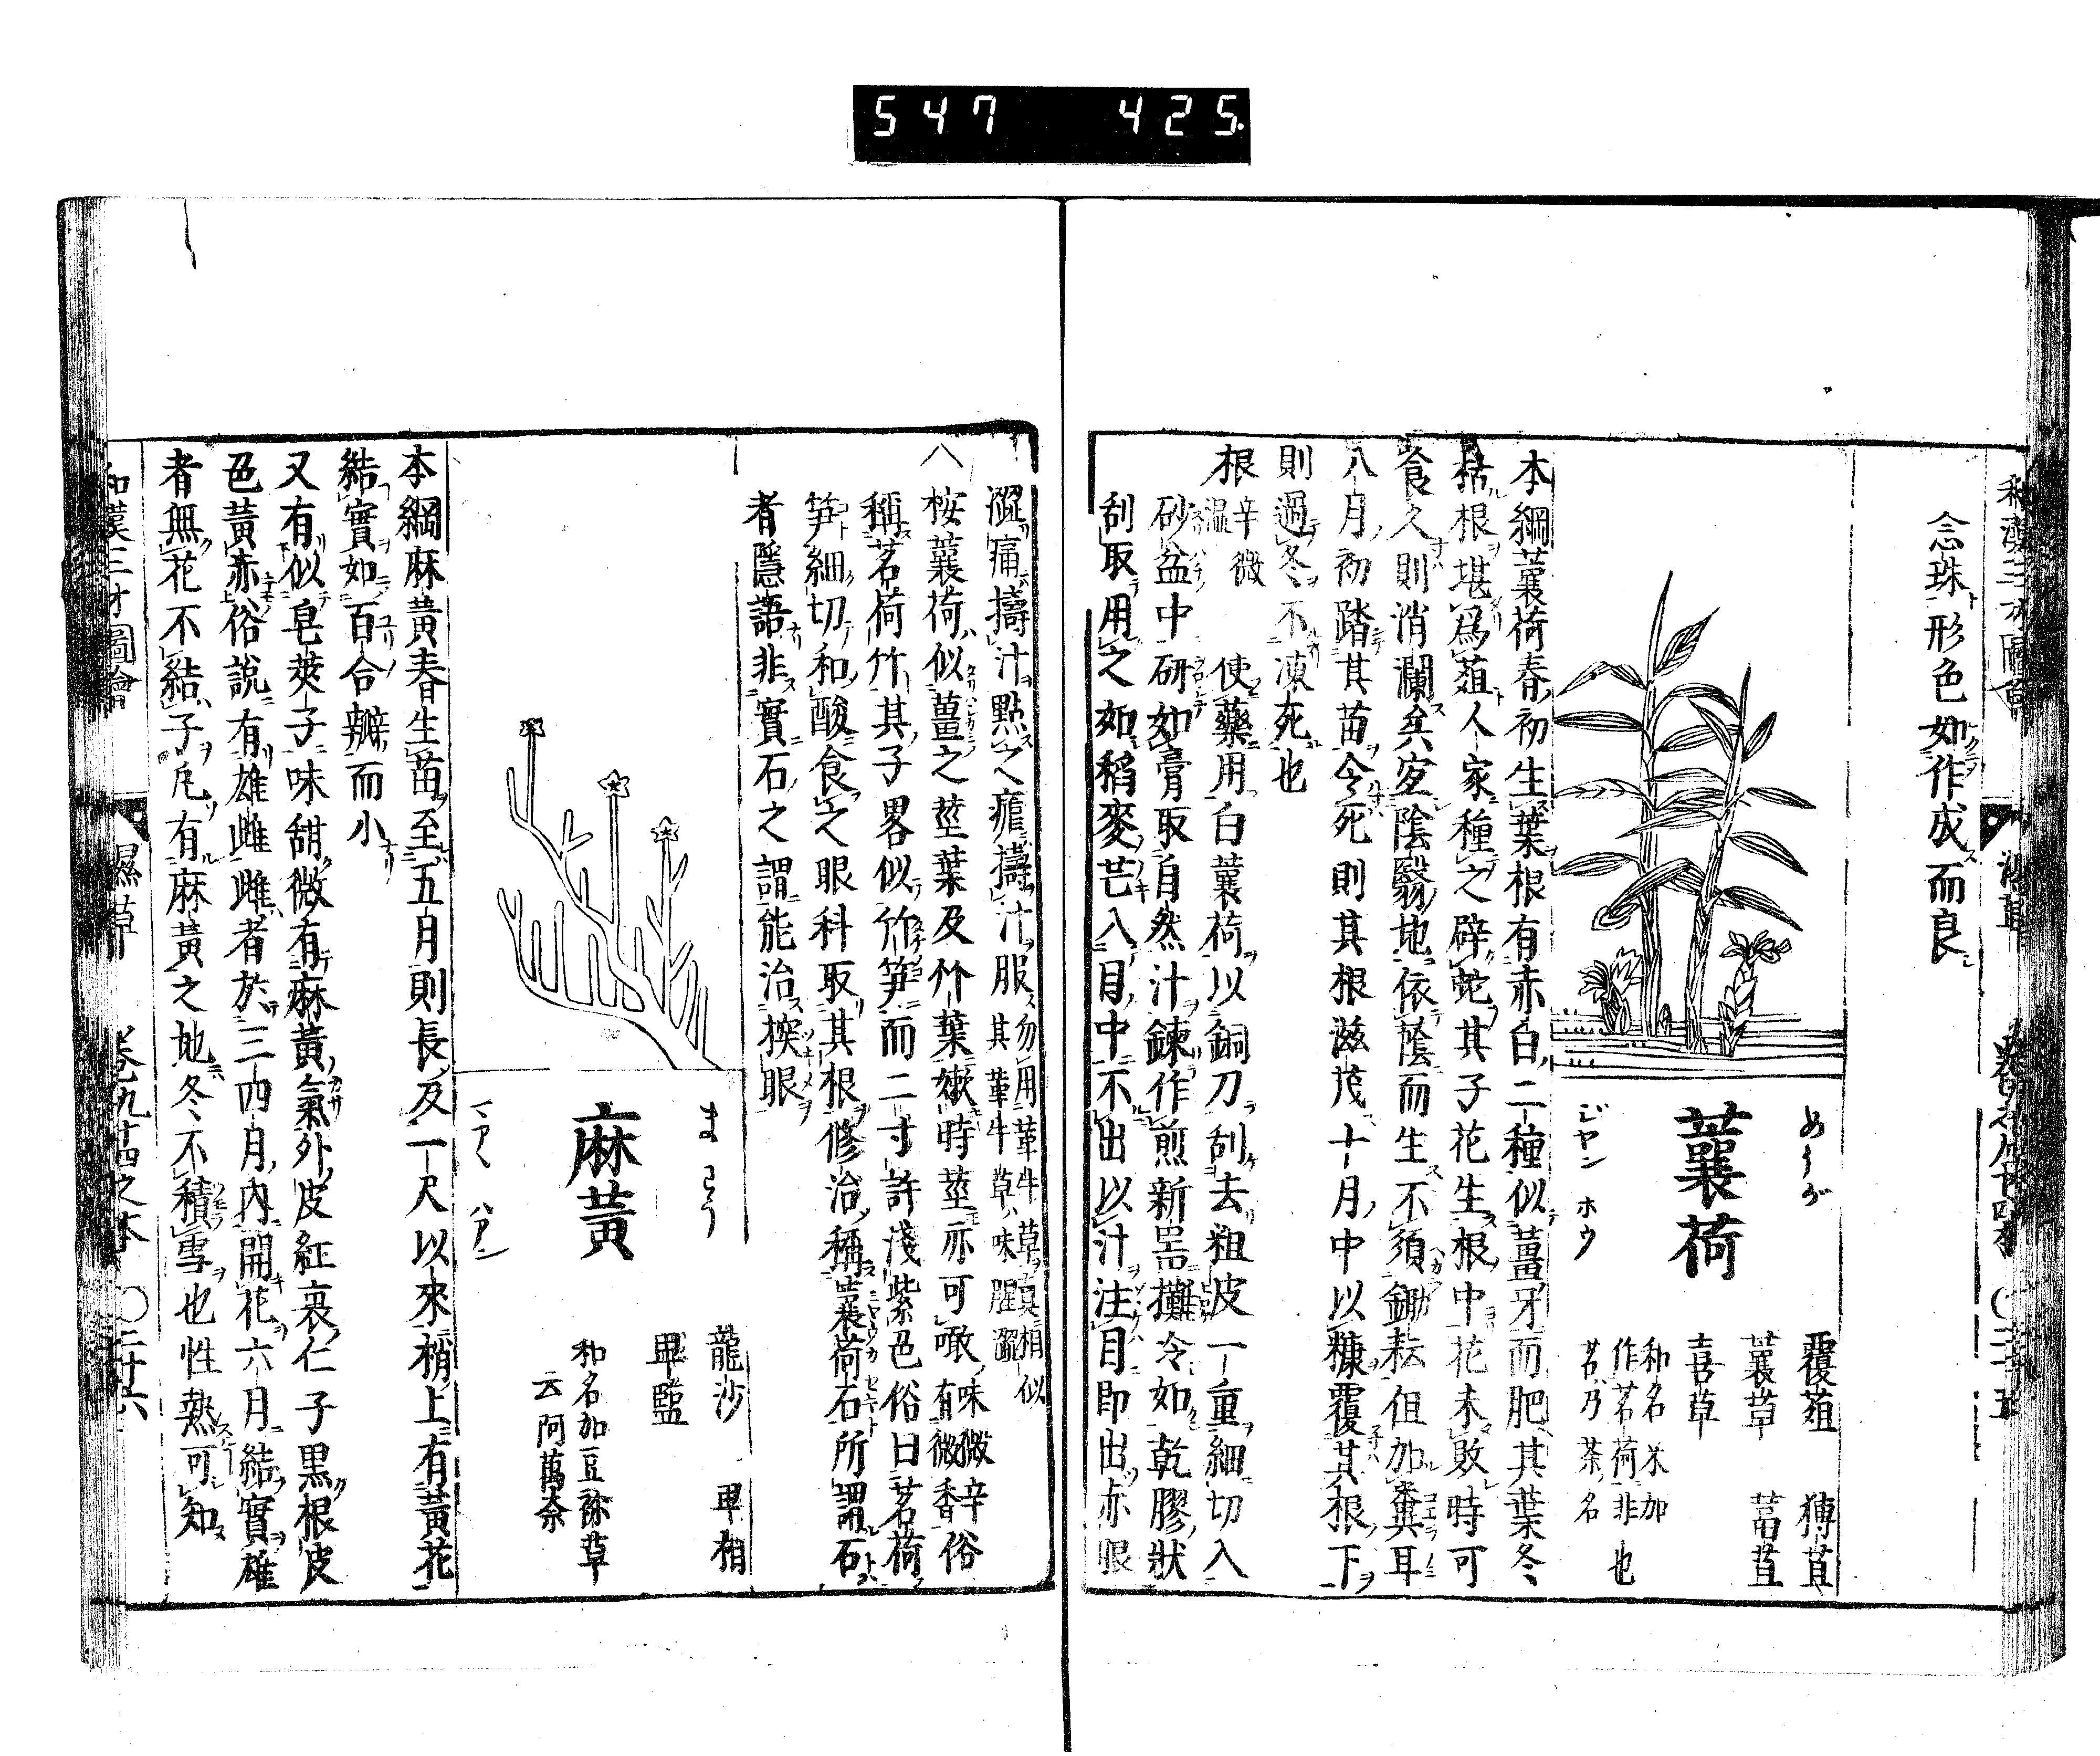 547 425
念珠形色如作成而良
めうが
蘘荷
ジヤン ホウ
覆葅 猼苴
蘘草 葍苴
喜草
和名米加
作茗荷非也
茗乃茶名
本綱蘘荷春初生葉根有赤白二種似薑牙而肥其葉冬
枯根堪爲葅人家種之辟蛇其子花生根中花未敗時可
食久則消爛矣宜陰翳地依蔭而生不須鋤耘但加糞耳
八月初踏其苗令死則其根滋茂十月中以糠覆其根下
則過冬不凍死也
根 辛微溫 使藥用白蘘荷以銅刀刮去粗皮一重細切入
砂盆中研如膏取自然汁鍊作煎新器攤冷如乾膠狀
刮取用之如稻麥芒入目中不出以汁注目即出赤眼
澀痛擣汁點之瘧擣汁服 勿用革牛草真相似
其革牛草味腥澀
△桉蘘荷似薑之莖葉及竹葉嫩時莖亦可噉味微辛俗
有微香
稱茗荷竹其子畧似竹笋而二寸許淺紫色俗曰茗荷
笋細切和酸食之眼科取其根修治稱蘘荷石所謂石
者隱語非實石之謂能治揬眼
まわう
麻黃
マアヽ ハアン
龍沙 卑相
卑鹽
和名加豆祢草
云阿萬奈
本綱麻黃春生苗至五月則長及一尺以來梢上有黃花
結實如百合瓣而小
又有似皂莢子味甜微有麻黃氣外皮紅裏仁子黒根皮
色黃赤俗說有雄雌雌者於三四月內開花六月結實雄
者無花不結子凡有麻黃之地冬不積雪也性熱可知
和漢三才圖會 濕草 卷九十四之本 〇二十六